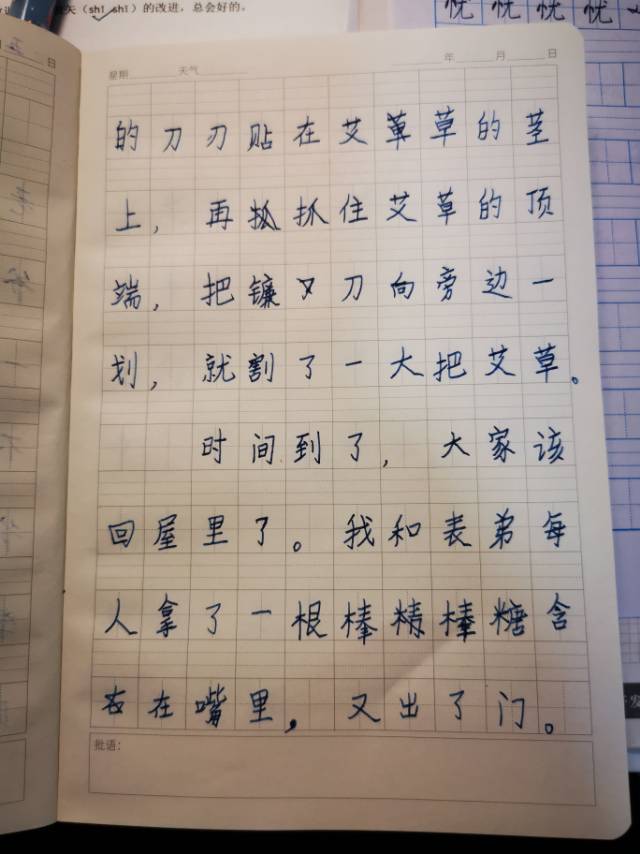 矢（shǐ shī）的改进，总会好的。
忧忧忧忧
日
星期 天气 年 月 日
的刀刃贴在艾草草的茎
上，再抓抓住艾草的顶
端，把镰又刀向旁边一
划，就割了一大把艾草。
时间到了，大家该
回屋里了。我和表弟每
人拿了一根棒精棒糖含
在在嘴里，又出了门。
批语：